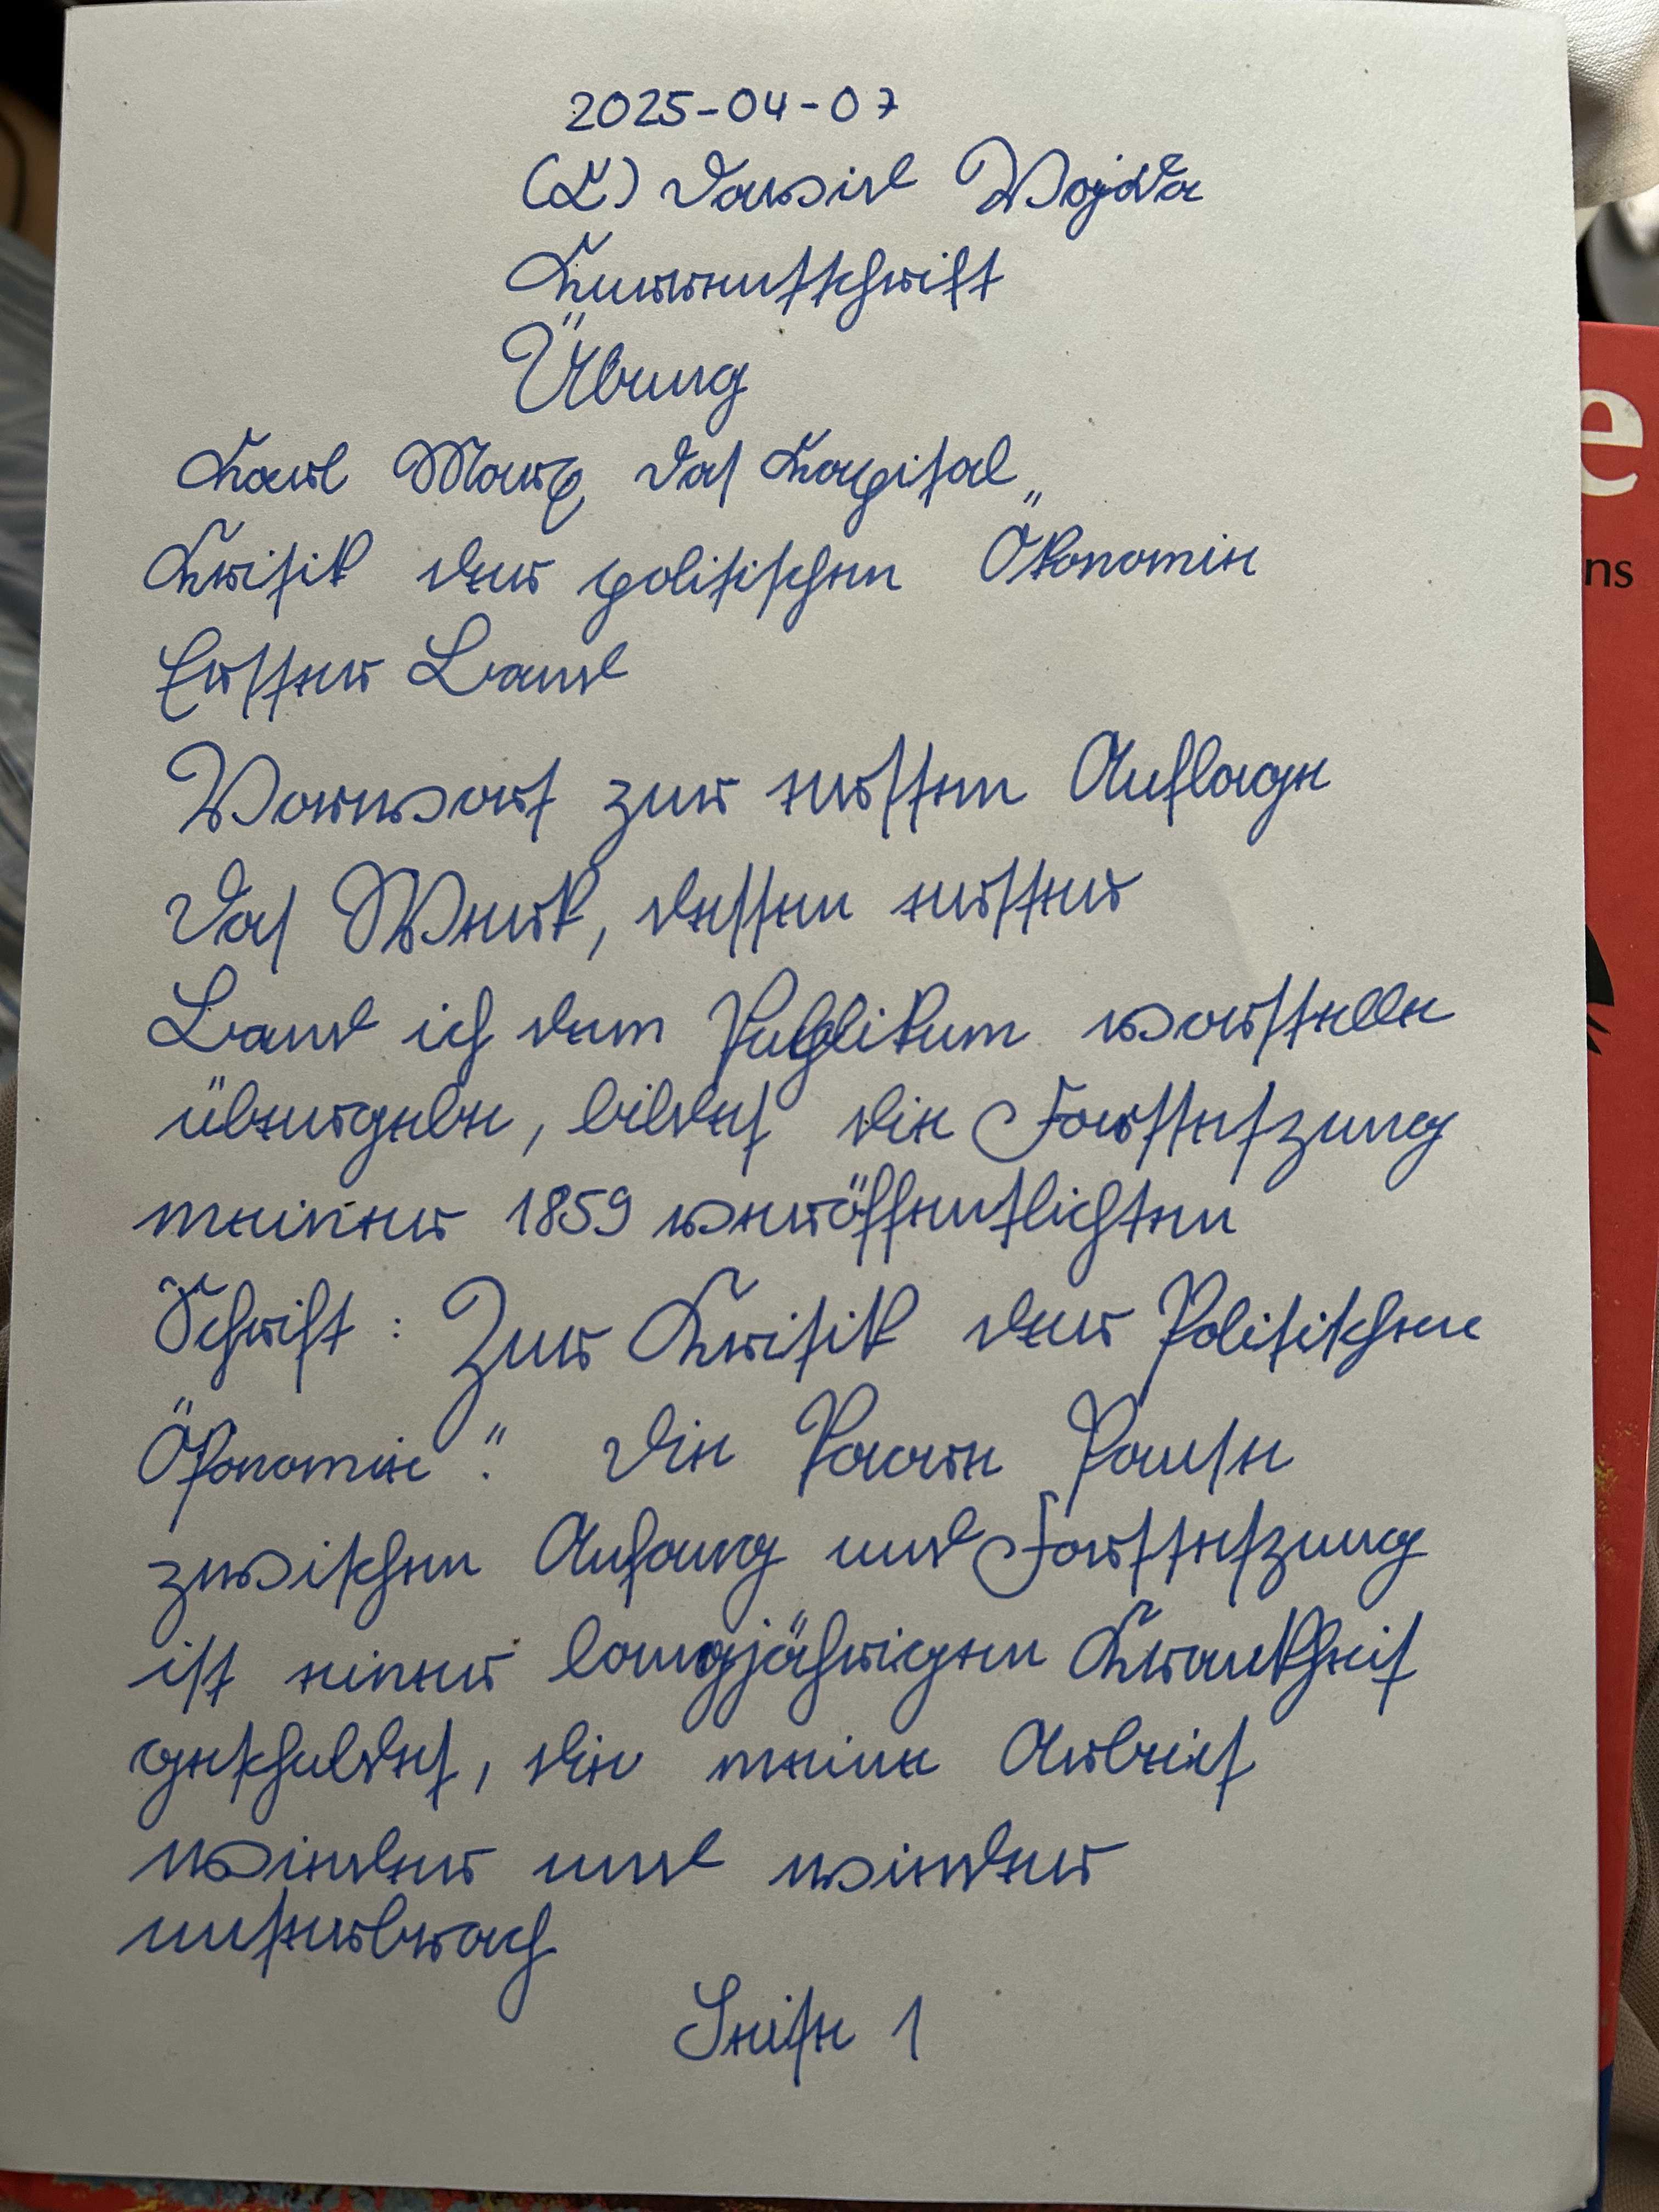 2025-04-07
Dawid Wojda
Kurrentschrift
Übung
Karl Marx Das Kapital
Kritik der politischen Ökonomie
Erster Band
Vorwort zur ersten Auflage
Das Werk, dessen erster
Band ich dem Publikum vorstelle
übergebe, bildet die Fortsetzung
meiner 1859 veröffentlichten
Schrift: „Zur Kritik der Politischen
Ökonomie“. Die Paare Pause
zwischen Anfang und Fortsetzung
ist einer langjährigen Krankheit
geschuldet, die meine Arbeit
wieder und wieder
unterbrach
Seite 1
e
ns